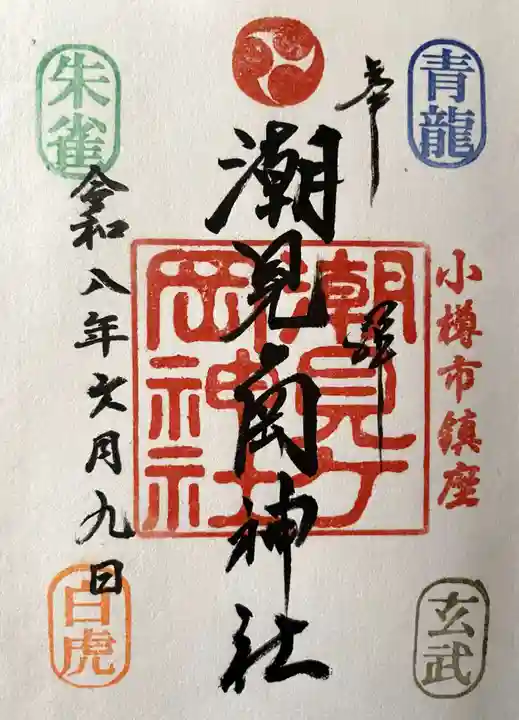 奉拝
青龍
小樽市鎮座
玄武
潮見岡神社
潮見ケ
岡神社
朱雀
令和八年六月九日
白虎